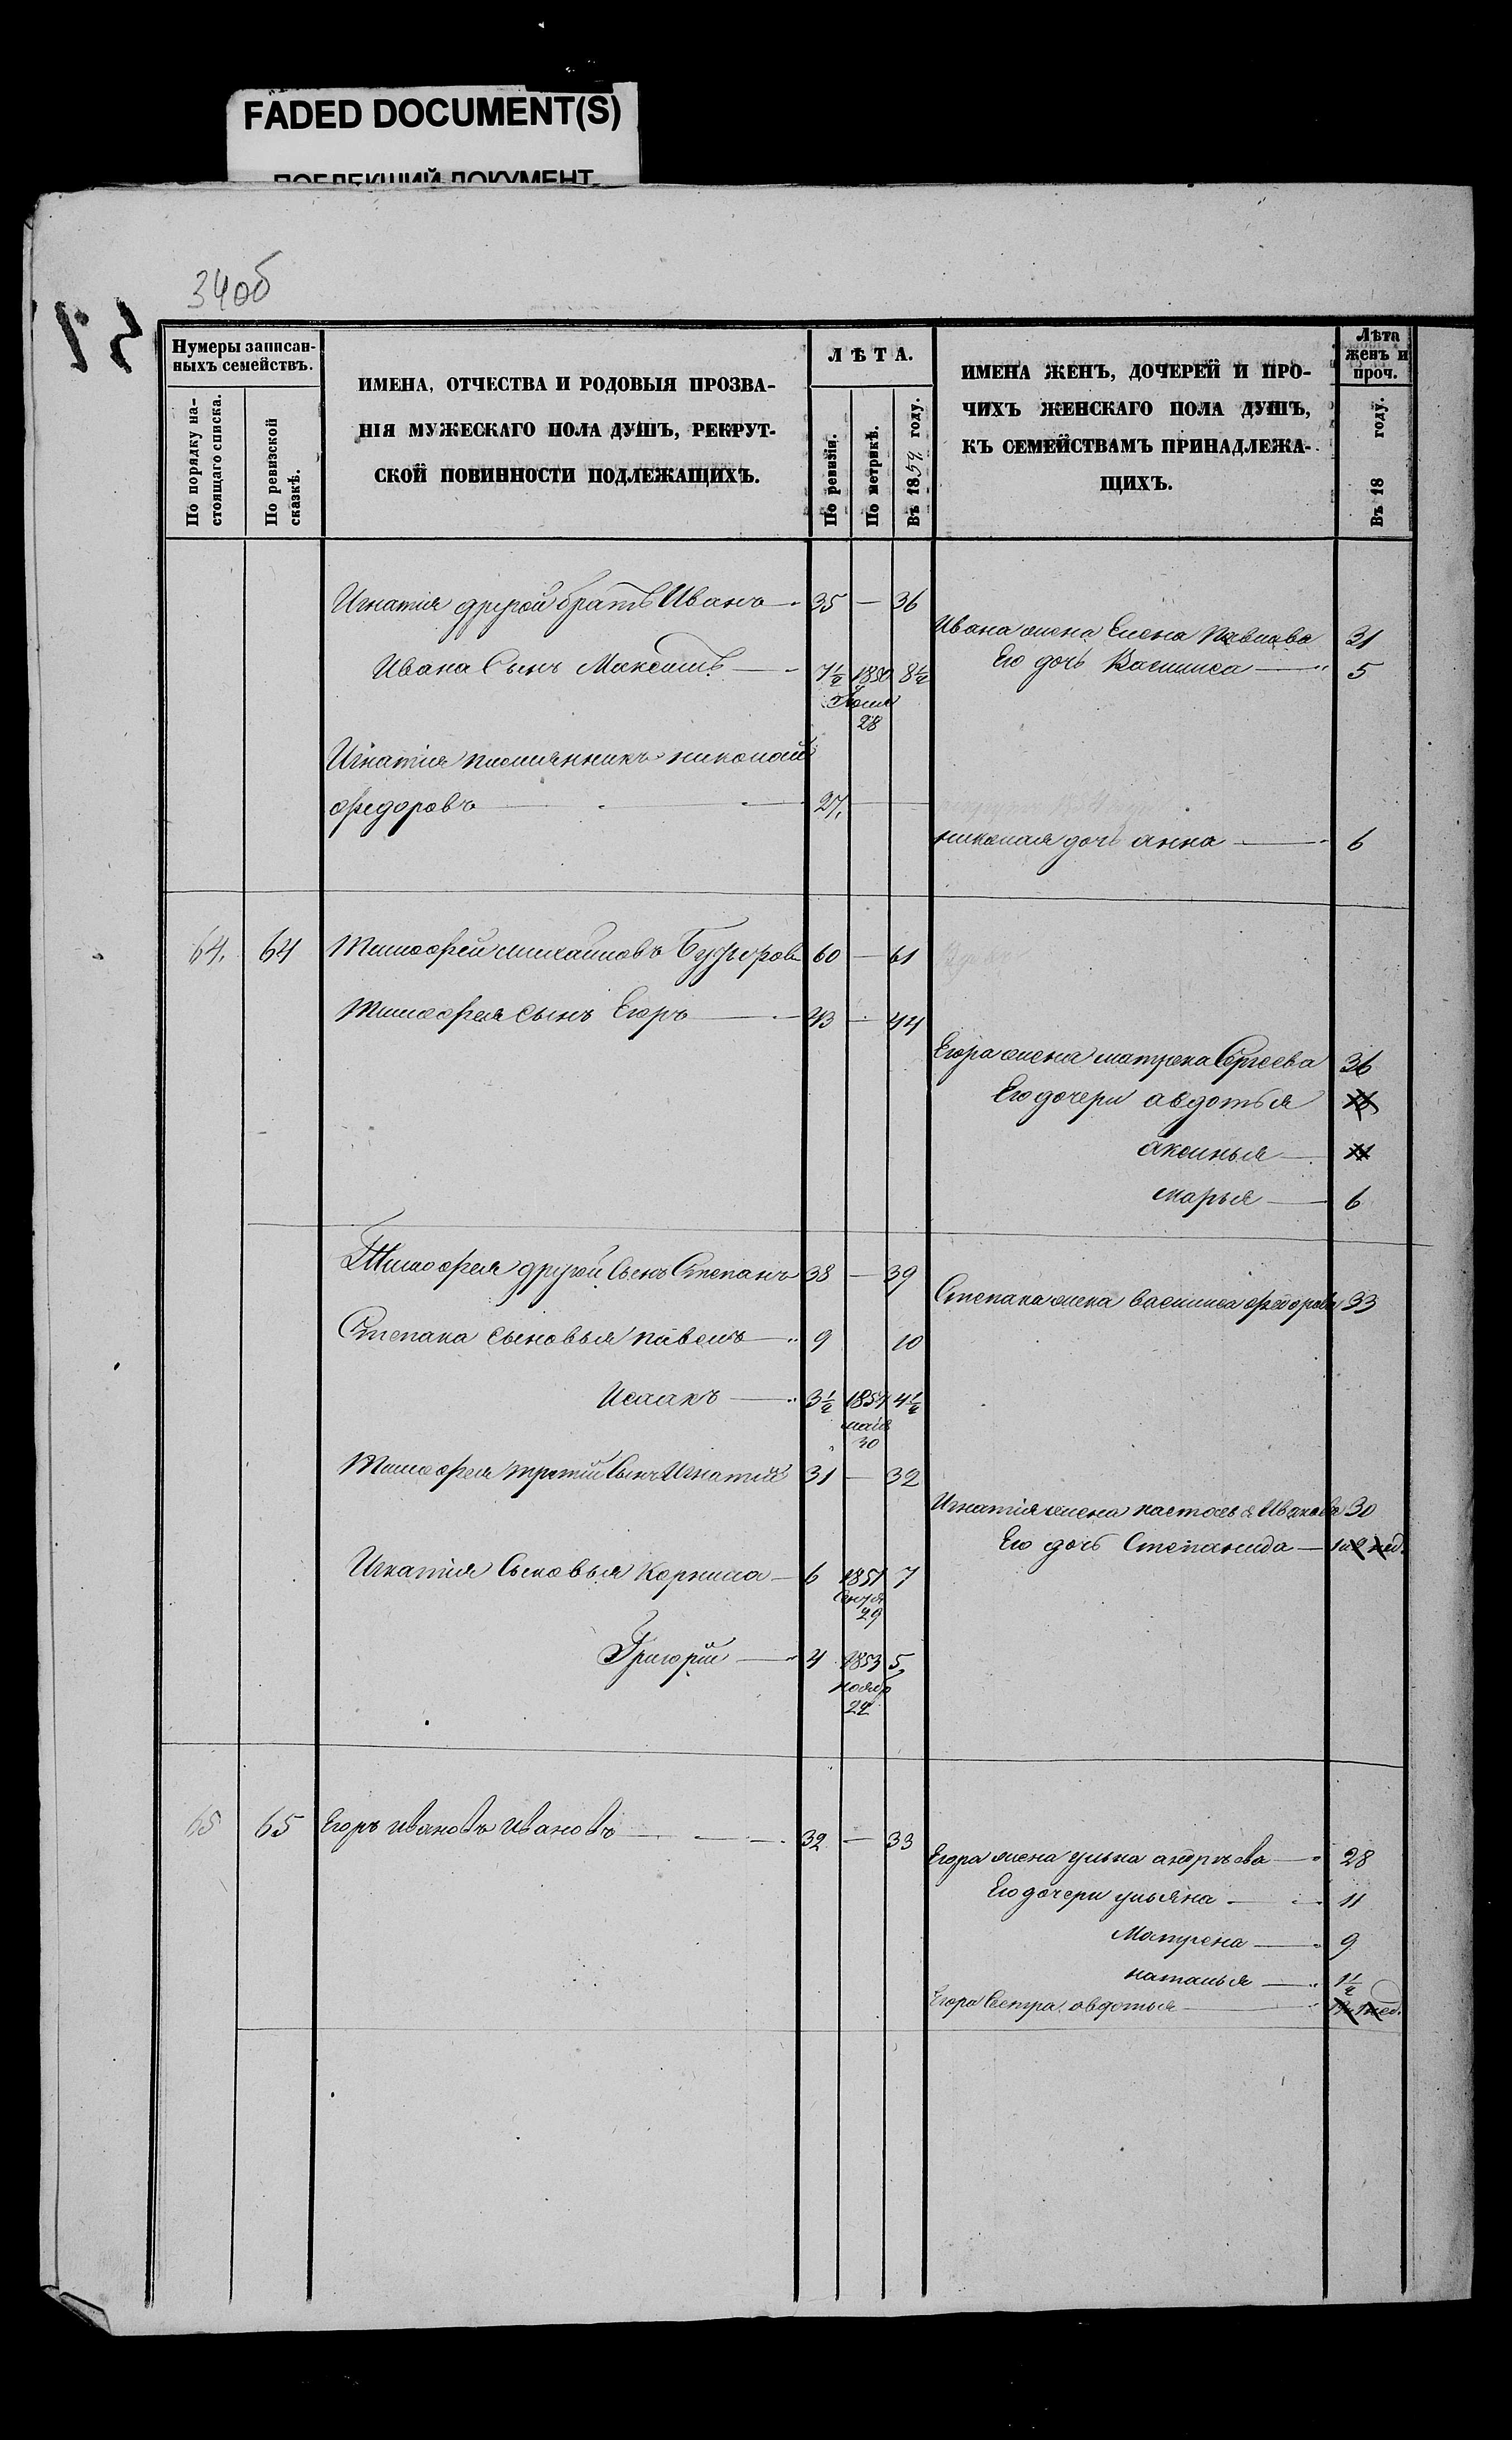 FADED DOCUMENT(S)
ПОБЛЕКШИЙ ДОКУМЕНТ
34об
Нумеры записан-
ныхъ семействъ.
По порядку на-
стоящаго списка.
По ревизской
сказкѣ.
ИМЕНА, ОТЧЕСТВА И РОДОВЫЯ ПРОЗВА-
НІЯ МУЖЕСКАГО ПОЛА ДУШЪ, РЕКРУТ-
СКОЙ ПОВИННОСТИ ПОДЛЕЖАЩИХЪ.
ЛѢТА.
По ревизіи.
По метрикѣ.
Въ 1859 году.
ИМЕНА ЖЕНЪ, ДОЧЕРЕЙ И ПРО-
ЧИХЪ ЖЕНСКАГО ПОЛА ДУШЪ,
КЪ СЕМЕЙСТВАМЪ ПРИНАДЛЕЖА-
ЩИХЪ.
Лѣта
женъ и
проч.
Въ 18 году.
Игнатія другой братъ Иванъ 35 — 36
Ивана жена Елена Павлова 31
Ивана Сынъ Максимъ 7½ 1850 8½
Его дочь Василиса 5
28
Игнатія племянникъ николай
Федоровъ 27.
николая дочь анна 6
64. 64 Тимофей михайловъ 60 — 61
Тимофея сынъ Егоръ 43 — 44
Егора жена матрена Сергеева 36
Его дочери авдотья
аксинья
марья 6
Тимофея другой Сынъ Степанъ 38 — 39
Степана жена василиса федорова 33
Степана сыновья павелъ 9 10
Исаакъ 3½ 1854 4½
маія
30
Тимофея третій Сынъ Игнатій 31 — 32
Игнатія жена настасья Иванова 30
Его дочь Степанида нед.
Игнатія Сыновья Корнила 6 1851 7
29
Григорій 4 1853 5
ноябр
24
65 65 Егоръ Ивановъ Ивановъ 32 — 33
Егора жена улька андрѣева 28
Его дочери ульяна 11
Матрена 9
наталья 1½
Егора Сестра авдотья нед.